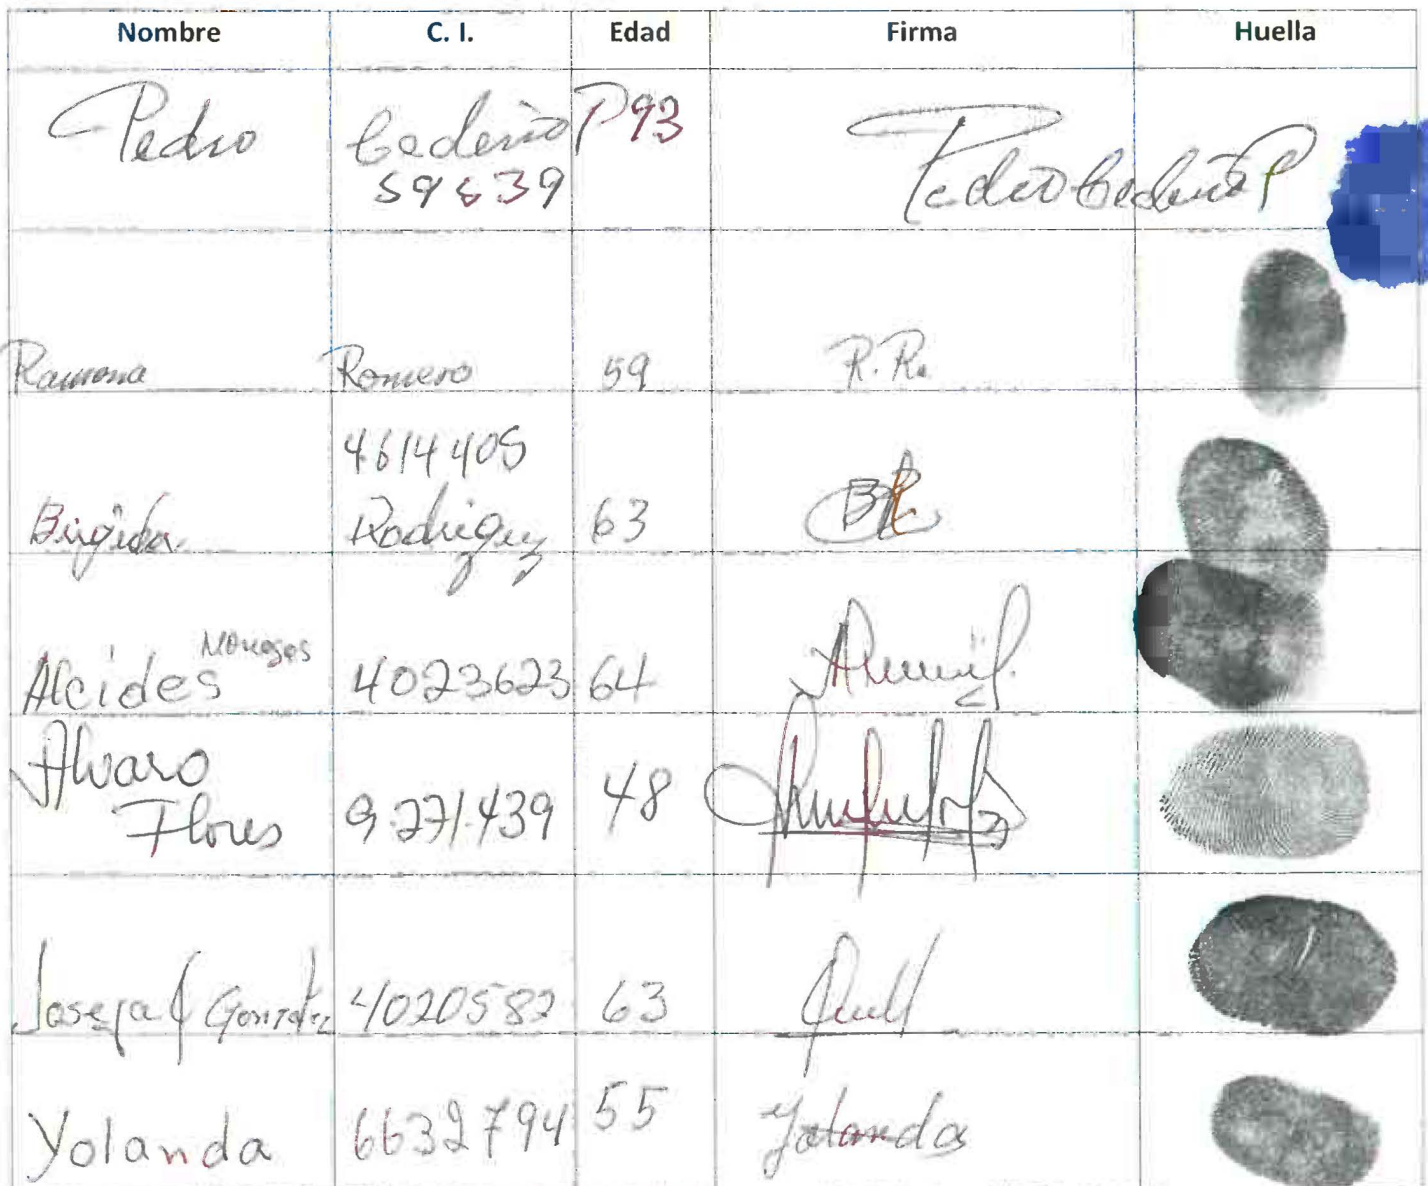 Nombre C. I. Edad Firma Huella
Pedro Cedeño P 93 Pedro Cedeño P
59639
Ramona Romero 59 R. Ro
4614405
Brigida Rodriguez 63 BR
Monagas
Alcides 4023623 64
Alvaro
Flores 9.271.439 48
Josefa J Gonzalez 4020582 63
Yolanda 6632794 55 Yolanda